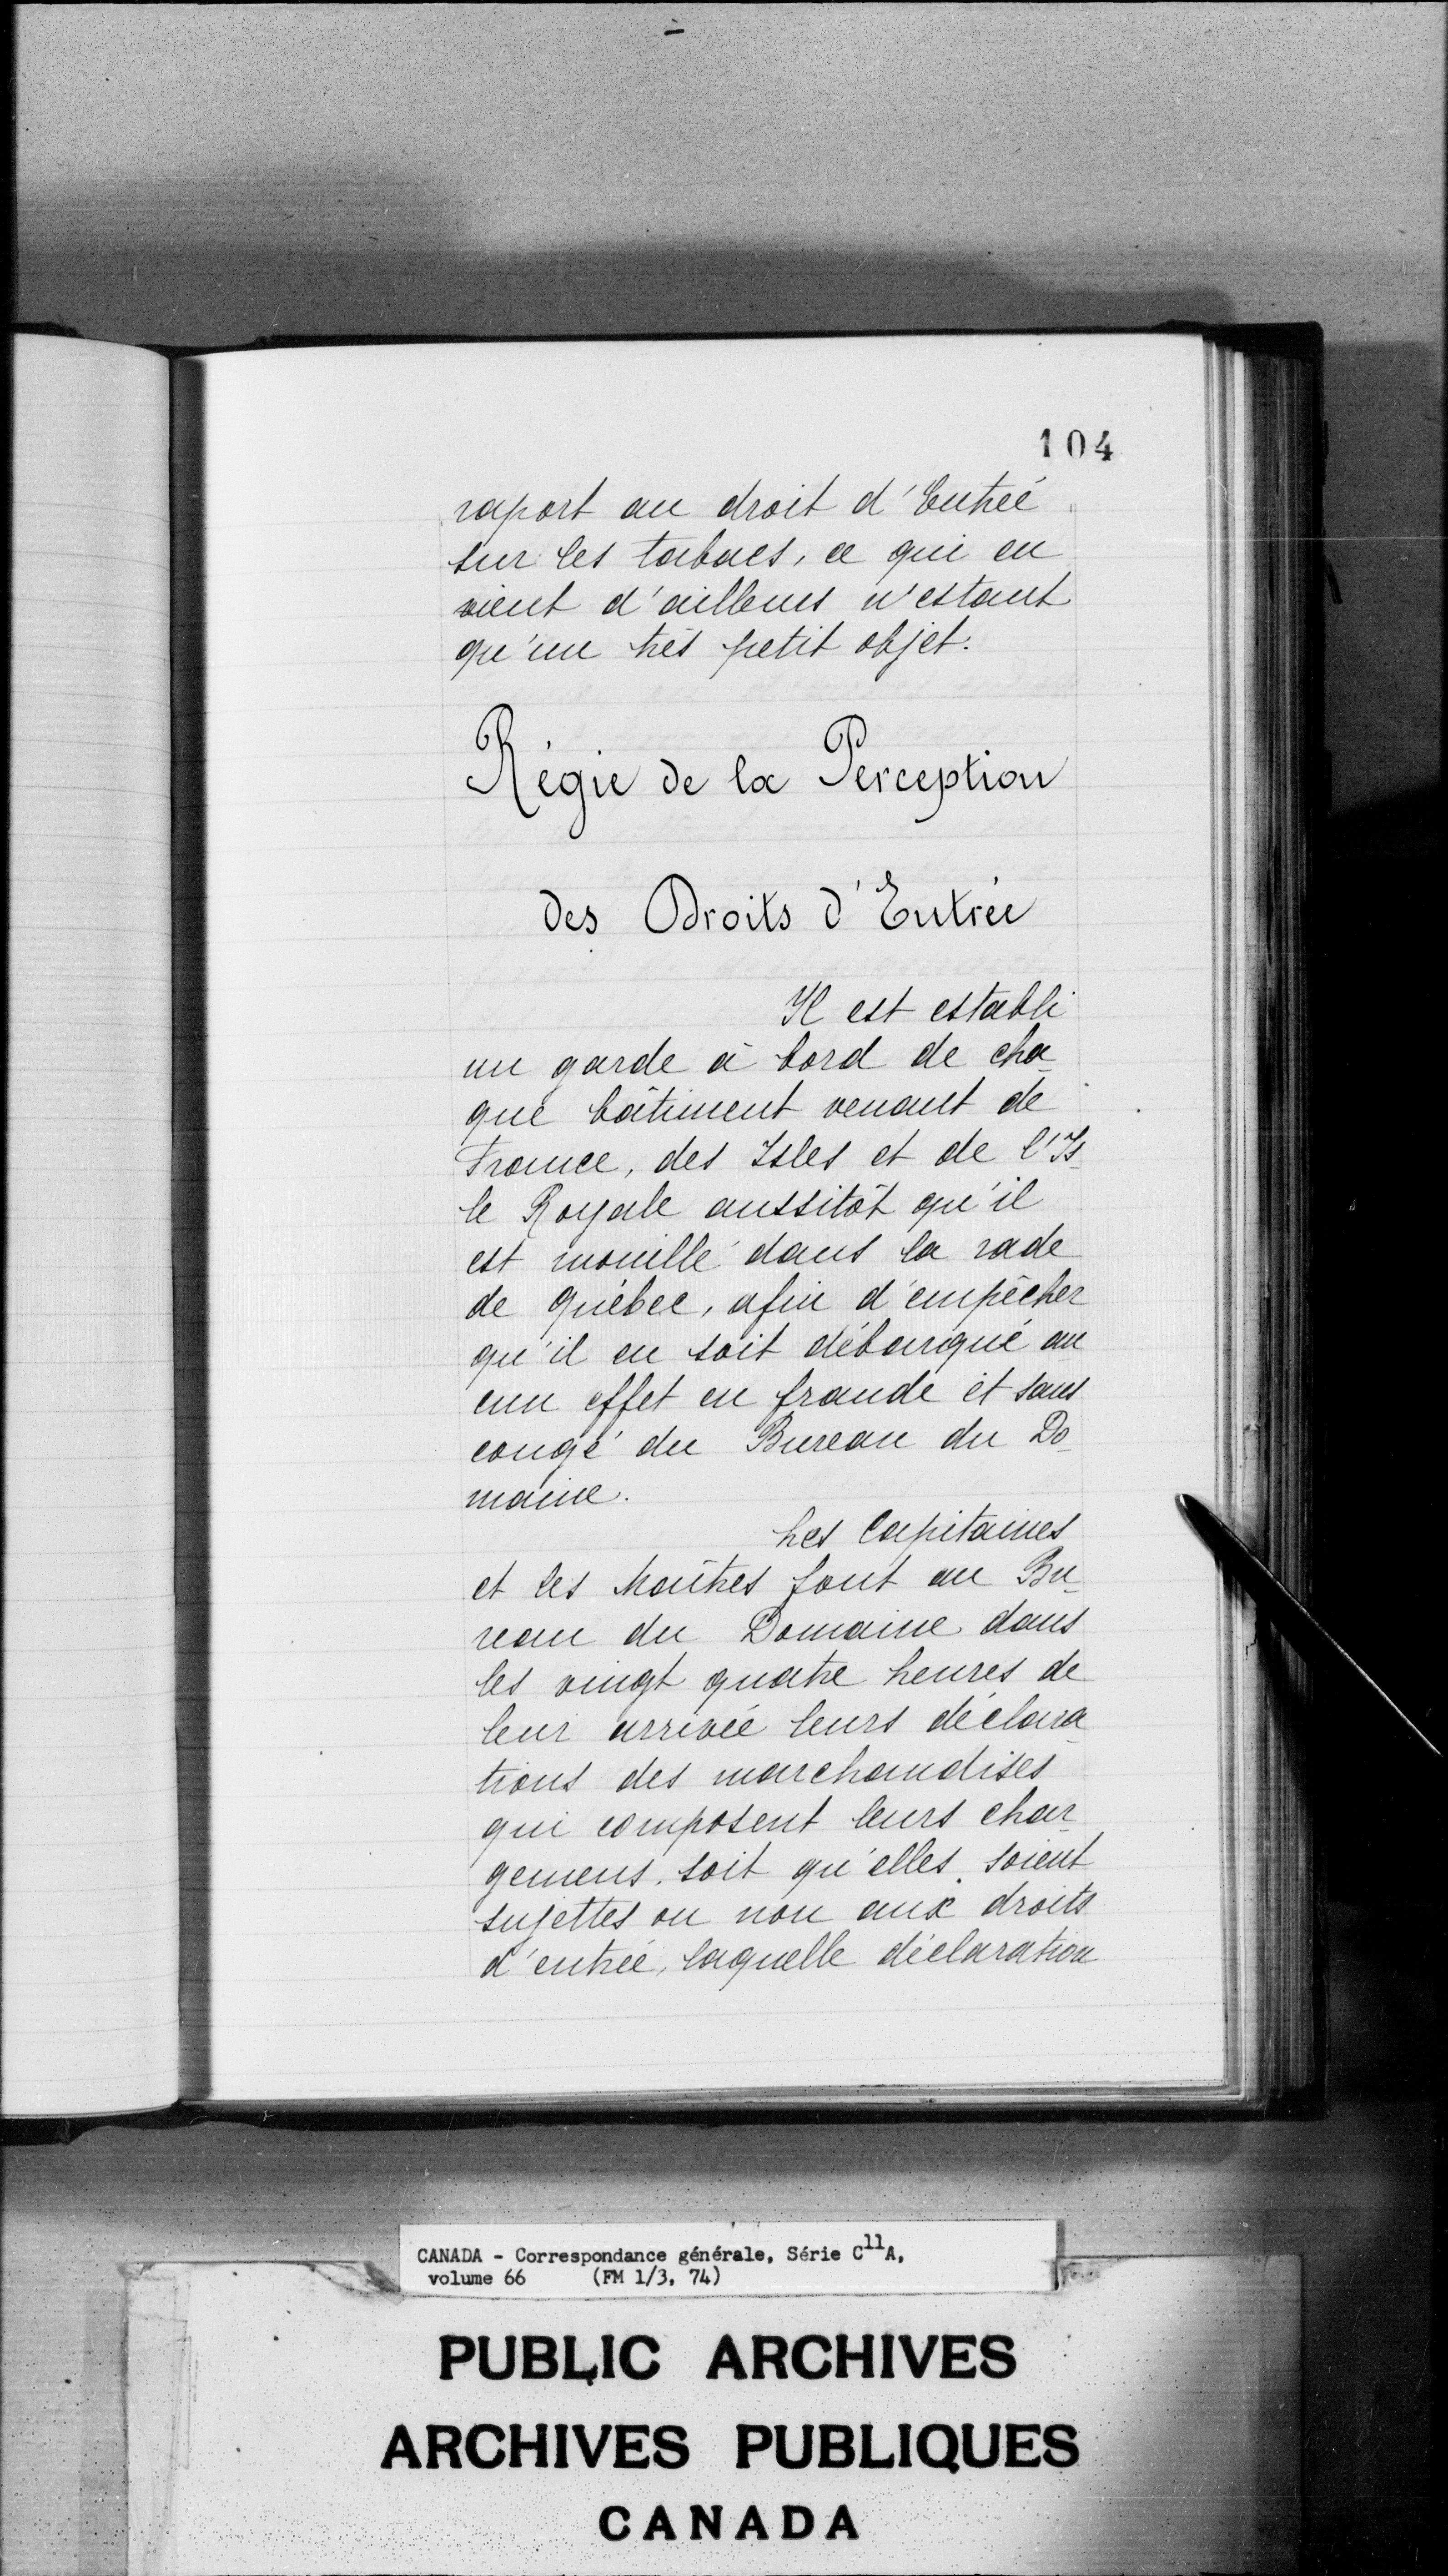 104
raport au droit d'Entrée
sur les tabacs, ce qui en
vient d'ailleurs n'estant
qu'un très petit objet.
Régie de la Perception
des Droits d'Entrée
Il est establi
un garde à bord de cha_
que bâtiment venant de
France, des Isles et de l'Is_
le Royale aussitôt qu'il
est mouillé dans la rade
de Québec, afin d'empêcher
qu'il en soit débarqué au
cun effet en fraude et sans
congé du Bureau du Do_
maine.
Les Capitaines
et les Maîtres font au Bu_
reau du Domaine dans
les vingt quatre heures de
leur arrivée leurs déclara_
tions des marchandises
qui composent leurs char_
gemens. soit qu'elles soient
sujettes ou non aux droits
d'entrée, laquelle déclaration
CANADA - Correspondance générale, Série C11A,
volume 66 (FM 1/3, 74)
PUBLIC ARCHIVES
ARCHIVES PUBLIQUES
CANADA